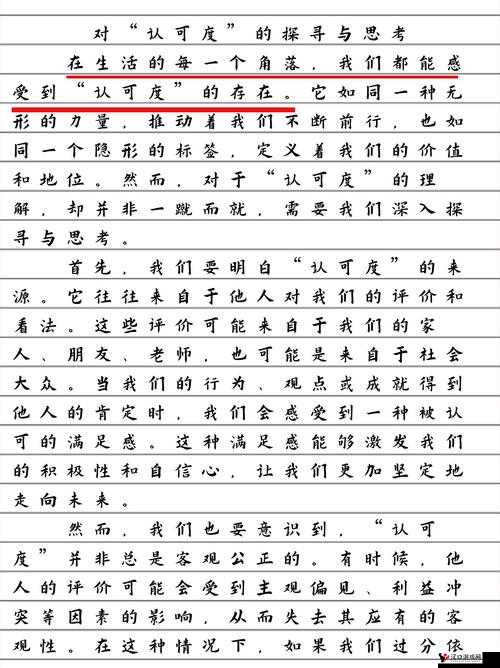 对“认可度”的探寻与思考
在生活的每一个角落，我们都能感
受到“认可度”的存在。它如同一种无
形的力量，推动着我们不断前行，也如
同一个隐形的标签，定义着我们的价值
和地位。然而，对于“认可度”的理
解，却并非一蹴而就，需要我们深入探
寻与思考。
首先，我们要明白“认可度”的来
源。它往往来自于他人对我们的评价和
看法。这些评价可能来自于我们的家
人、朋友、老师，也可能是来自于社会
大众。当我们的行为、观点或成就得到
他人的肯定时，我们会感受到一种被认
可的满足感。这种满足感能够激发我们
的积极性和自信心，让我们更加坚定地
走向未来。
然而，我们也要意识到，“认可
度”并非总是客观公正的。有时候，他
人的评价可能会受到主观偏见、利益冲
突等因素的影响，从而失去其应有的客
观性。在这种情况下，如果我们过分依
汉口游戏网